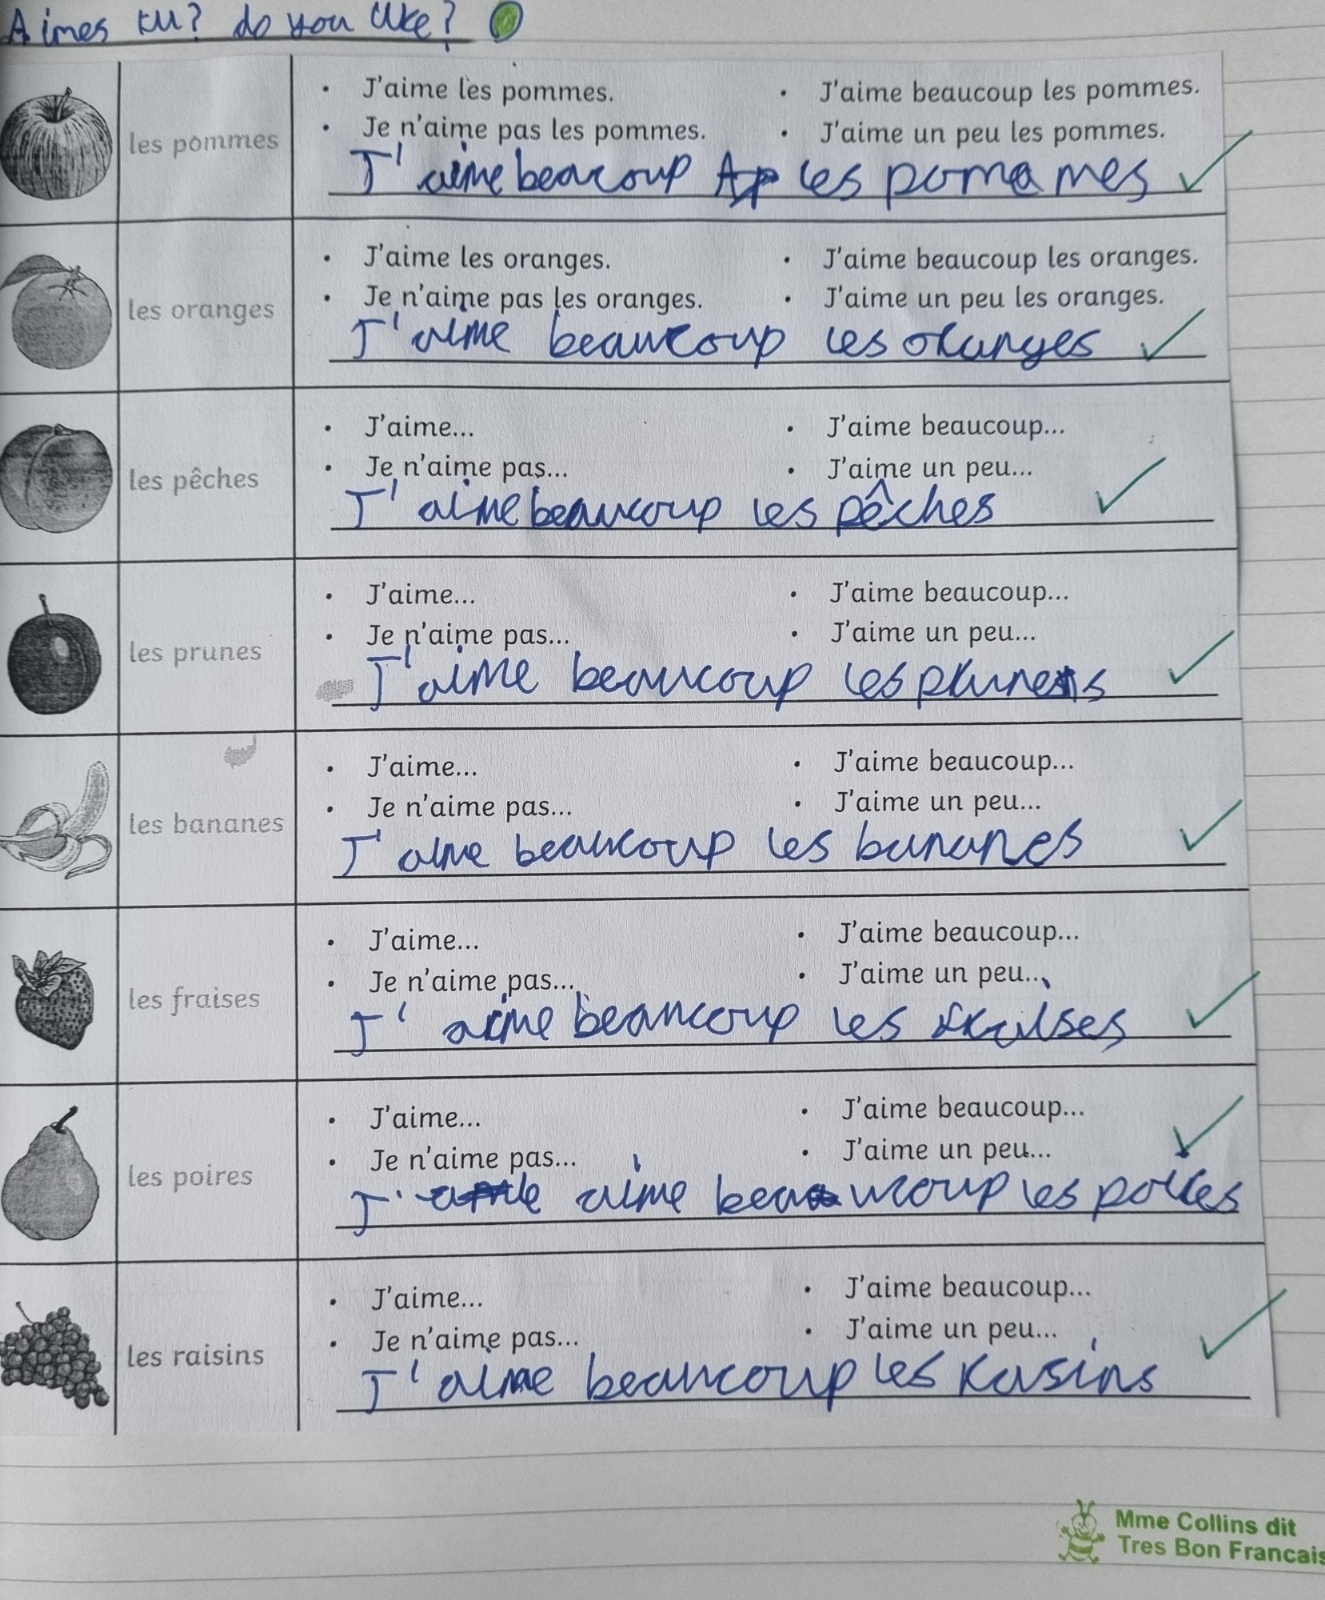 Aimes tu? do you like?
les pommes
J'aime les pommes.
J'aime beaucoup les pommes.
Je n'aime pas les pommes.
J'aime un peu les pommes.
J'aime beaucoup les pomames
les oranges
J'aime les oranges.
J'aime beaucoup les oranges.
Je n'aime pas les oranges.
J'aime un peu les oranges.
J'aime beaucoup les oranges
les pêches
J'aime...
J'aime beaucoup...
Je n'aime pas...
J'aime un peu...
J'aime beaucoup les pêches
les prunes
J'aime...
J'aime beaucoup...
Je n'aime pas...
J'aime un peu...
J'aime beaucoup les prunes
les bananes
J'aime...
J'aime beaucoup...
Je n'aime pas...
J'aime un peu...
J'aime beaucoup les bananes
les fraises
J'aime...
J'aime beaucoup...
Je n'aime pas...
J'aime un peu...
J'aime beaucoup les fraises
les poires
J'aime...
J'aime beaucoup...
Je n'aime pas...
J'aime un peu...
J' aime beaucoup les poires
les raisins
J'aime...
J'aime beaucoup...
Je n'aime pas...
J'aime un peu...
J'aime beaucoup les rasins
Mme Collins dit
Tres Bon Francais